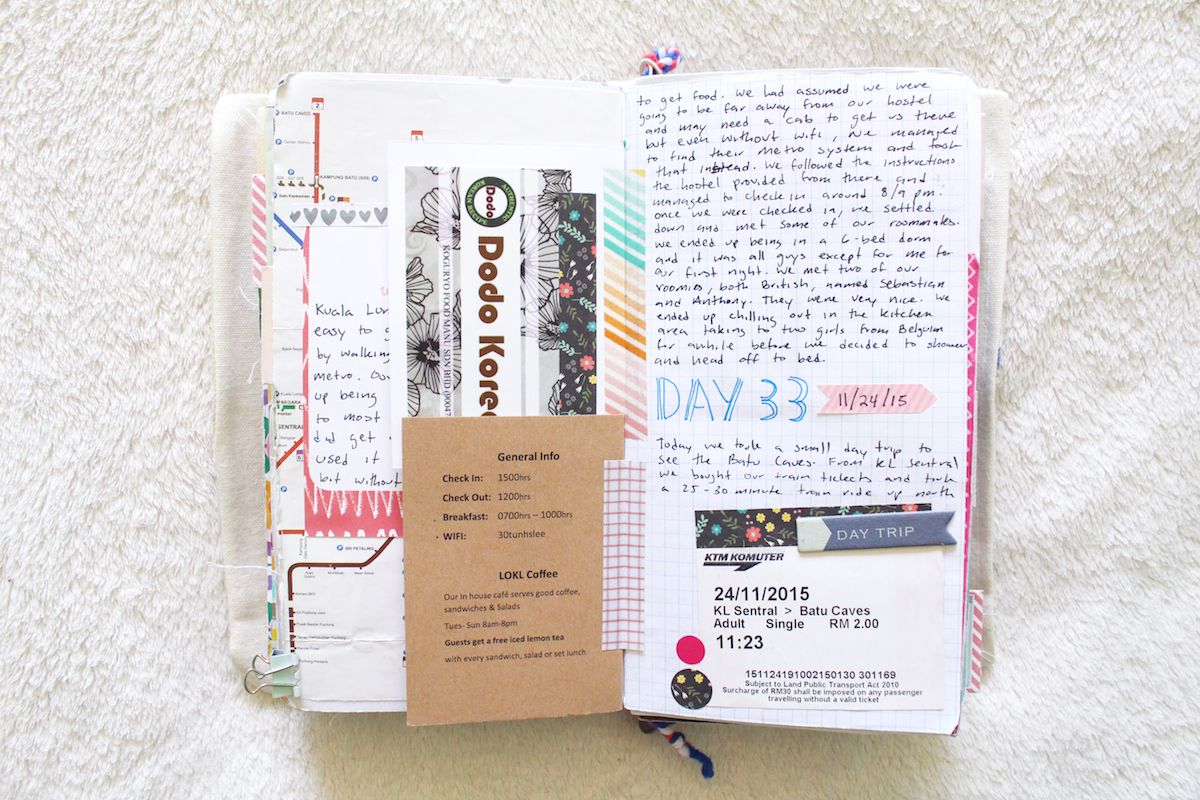 2
BATU CAVES
5
KAMPUNG BATU
Kuala Lum
easy to g
by walking
metro.
up being
to most
did get
used it
but without
SENTRAL
SRI PETALING
AUTHENTIC
KOREAN RECIPE
Dodo
Dodo Kore
KOGILRYO FOOD MANU. SDN BHD
General Info
Check In: 1500hrs
Check Out: 1200hrs
Breakfast: 0700hrs – 1000hrs
WIFI: 30tunhslee
LOKL Coffee
Our In house café serves good coffee,
sandwiches & Salads
Tues- Sun 8am-8pm
Guests get a free iced lemon tea
with every sandwich, salad or set lunch
to get food. We had assumed we were
going to be far away from our hostel
and may need a cab to get us there
but even without wifi, we managed
to find their metro system and took
that instead. We followed the instructions
the hostel provided from there and
managed to check in around 8/9 pm.
once we were checked in, we settled
down and met some of our roommates.
we ended up being in a 6-bed dorm
and it was all guys except for me for
our first night. We met two of our
roomies, both British, named Sebastian
and Anthony. They were very nice. We
ended up chilling out in the kitchen
area talking to two girls from Belgium
for awhile before we decided to shower
and head off to bed.
DAY 33
11/24/15
Today we took a small day trip to
see the Batu Caves. From KL Sentral
we bought our train tickets and took
a 25-30 minute train ride up north
DAY TRIP
KTM KOMUTER
24/11/2015
KL Sentral > Batu Caves
Adult Single RM 2.00
11:23
15112419100215013​0 301169
Subject to Land Public Transport Act 2010
Surcharge of RM30 shall be imposed on any passenger
travelling without a valid ticket